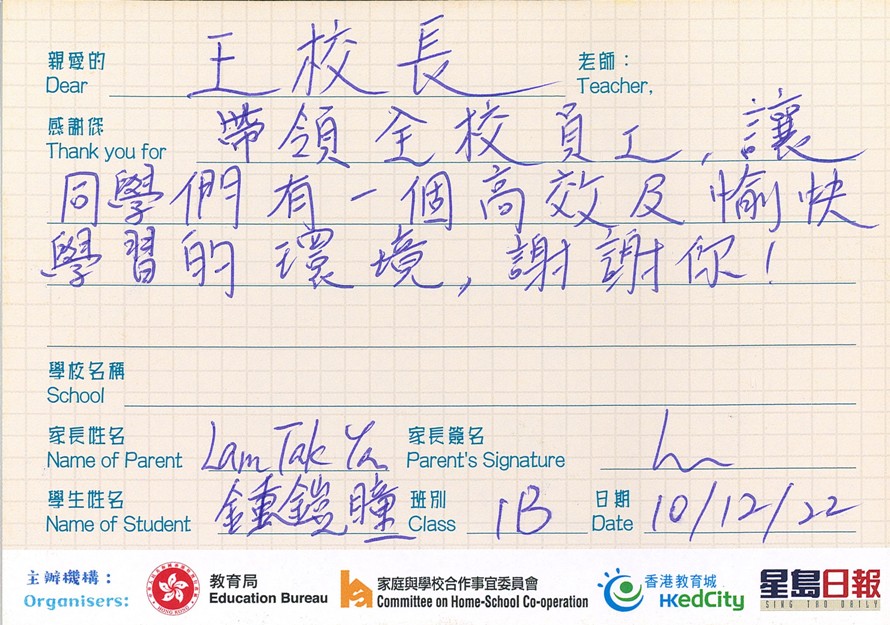 親愛的 王校長 老師：
Dear Teacher,
感謝你 帶領全校員工，讓
Thank you for
同學們有一個高效及愉快
學習的環境，謝謝你！
學校名稱
School
家長姓名 Lam Tak Ya 家長簽名
Name of Parent Parent's Signature
學生姓名 鍾鎧瞳 班別 1B 日期 10/12/22
Name of Student Class Date
主辦機構： 教育局 家庭與學校合作事宜委員會 香港教育城 星島日報
Organisers: HONG KONG Education Bureau Committee on Home-School Co-operation HKedCity SING TAO DAILY